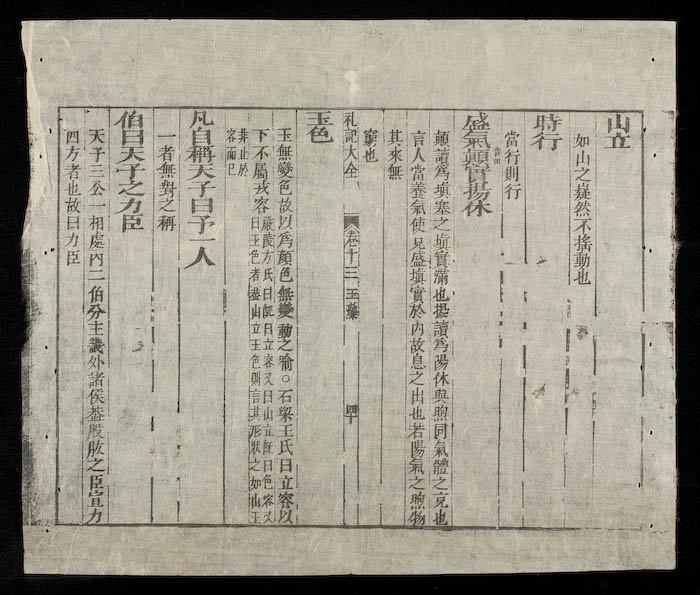 山立
如山之嶷然不搖動也
時行
當行則行
盛氣顛實揚休
顛讀為塡塞之塡實滿也揚讀為陽休與煦同氣體之充也
言人當養氣使見盛塡實於內故息之出也若陽氣之煦物
其來無
窮也
礼記大全 卷十三 玉藻 四十
玉色
玉無變色故以為顏色無變動之喻○石梁王氏曰立容以
下不屬戎容
嚴陵方氏曰旣曰立容又曰山立旣曰色容又
曰玉色者葢山立玉色則言其形狀之如山玉
非止於
容而已
凡自稱天子曰予一人
一者無對之稱
伯曰天子之力臣
天子三公一相處內二伯分主畿外諸侯葢股肱之臣宣力
四方者也故曰力臣